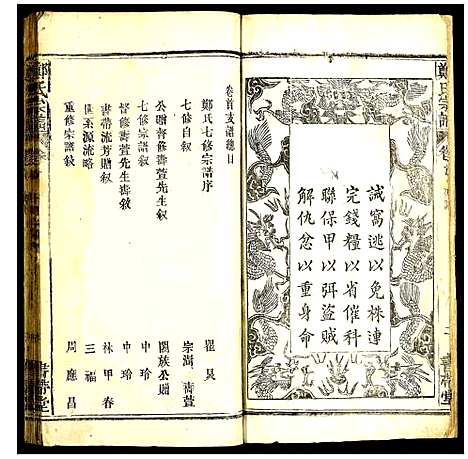 鄭氏宗譜
誡窩逃以免株連
完錢糧以省催科
聯保甲以弭盜賊
解仇忿以重身命
書帶堂
卷首支譜總目
鄭氏七修宗譜序
七修自叙
宗湖 壽萱
公贈督修壽萱先生叙
闔族公贈
七修宗譜叙
中培
督修壽萱先生壽敘
中培
書帶流芳贈叙
林甲春
世系源流略
三福
重修宗譜敘
周應昌
鄭氏宗譜
書帶堂